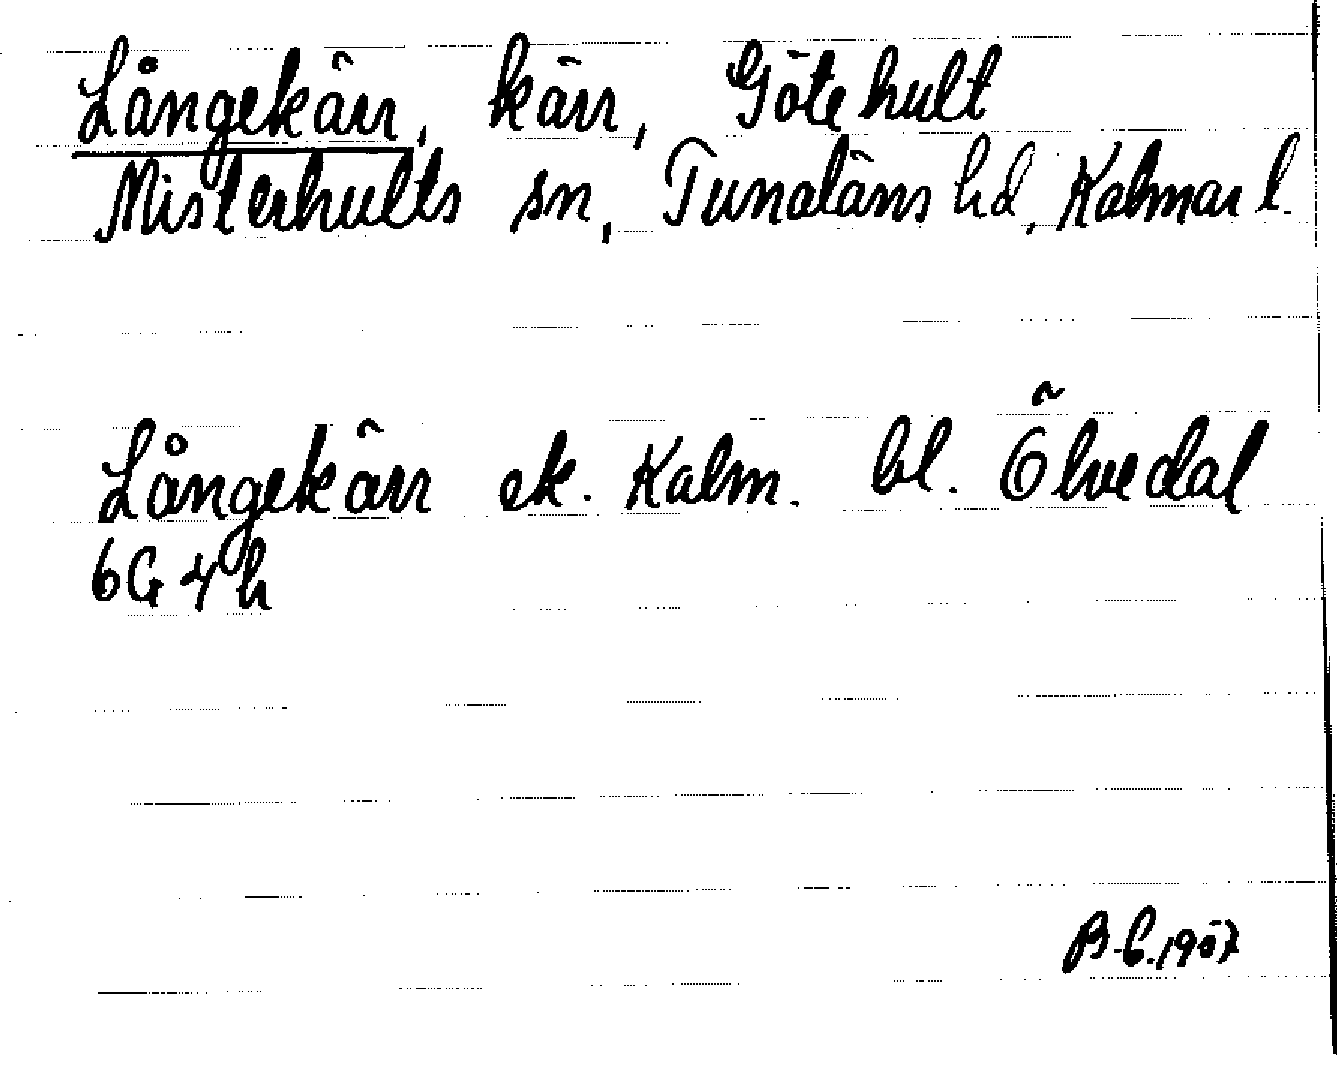 Långekärr, kärr, Götehult
Misterhults sn, Tunaläns hd, Kalmar l.
Långekärr ek. Kalm. bl. Ölvedal
6G 4h
B.C. 1957